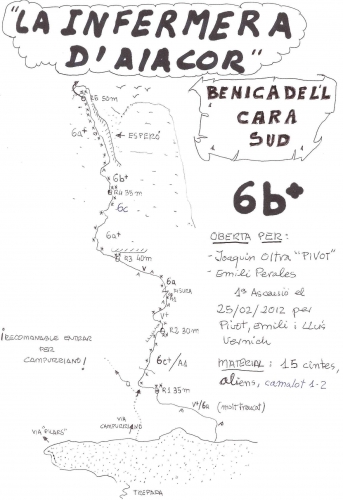 "LA INFERMERA
D'AIACOR"
BENICADELL
CARA
SUD
6b+
OBERTA PER:
- Joaquin Oltra "PIVOT"
- Emili Perales
1ª Ascensió el
25/02/2012 per
Pivot, Emili i Lluís
Vernich
MATERIAL: 15 cintes,
aliens, camalot 1-2
R5 50m
6a+
← ESPERÓ
6b+
R4 35m
6c
6a+
R3 40m
V
6a
A1
V+
R2 30m
¡RECOMANABLE ENTRAR
PER
CAMPURRIANO!
6c+/A1
R1 35m
V+/6a (molt trencat)
VIA
CAMPURRIANO
VIA "PILARS"
TREPADA